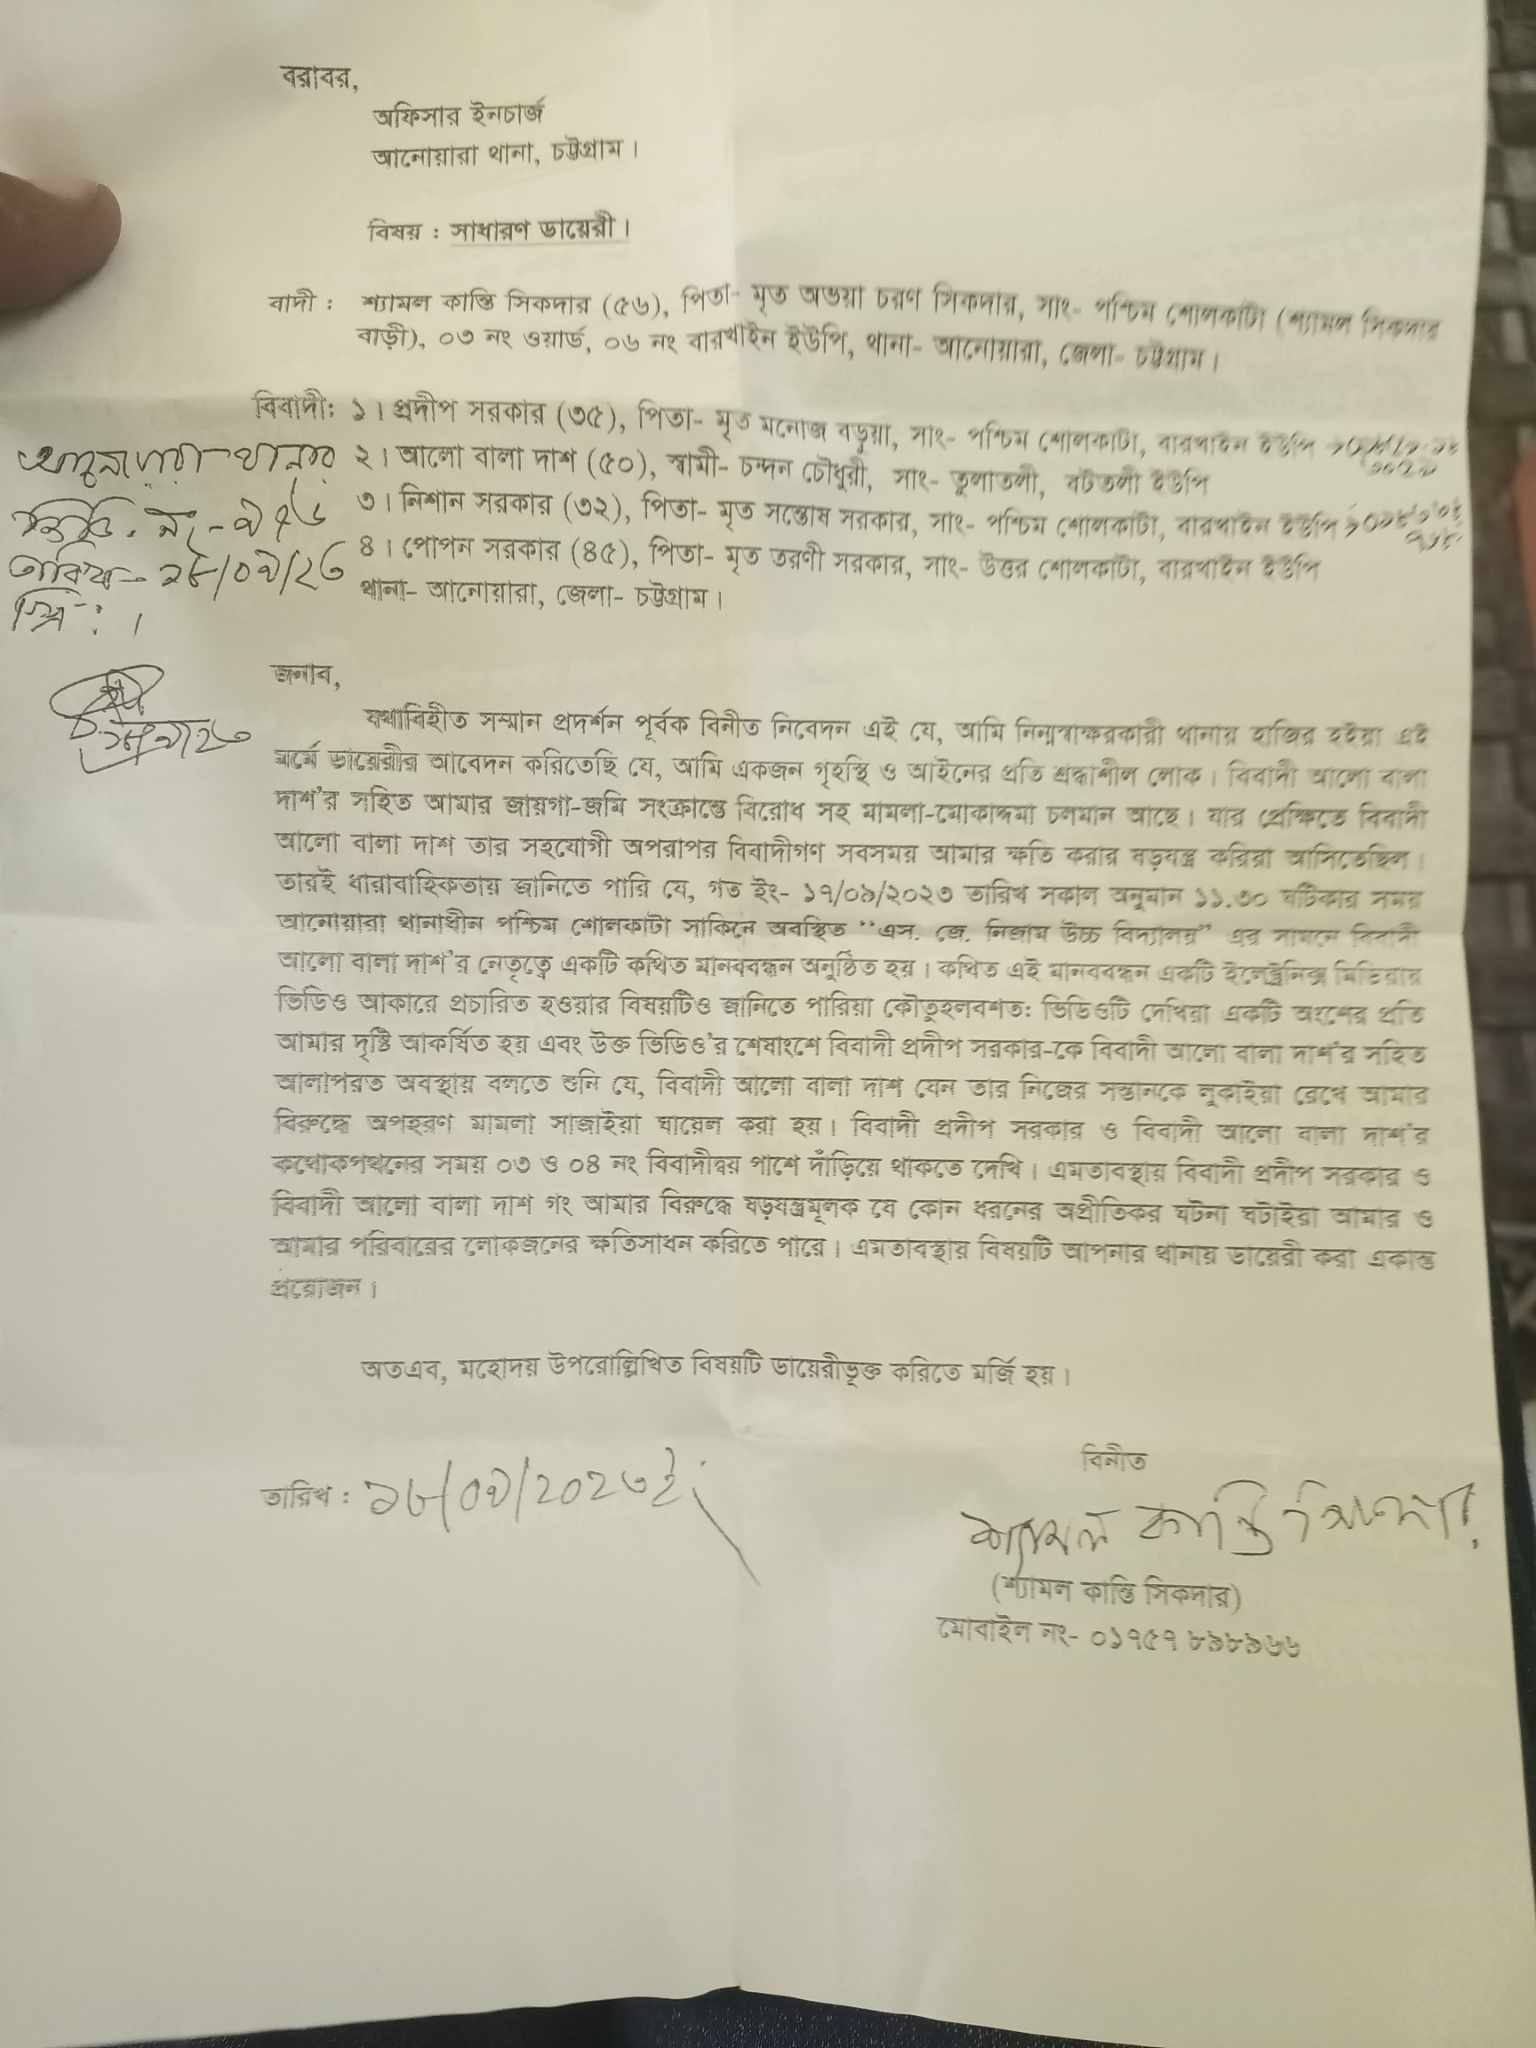 বরাবর,
অফিসার ইনচার্জ
আনোয়ারা থানা, চট্টগ্রাম।
বিষয় : সাধারণ ডায়েরী।
বাদী : শ্যামল কান্তি সিকদার (৫৬), পিতা- মৃত অভয়া চরণ সিকদার, সাং- পশ্চিম শোলকাটা (শ্যামল সিকদার
বাড়ী), ০৩ নং ওয়ার্ড, ০৬ নং বারখাইন ইউপি, থানা- আনোয়ারা, জেলা- চট্টগ্রাম।
বিবাদী: ১। প্রদীপ সরকার (৩৫), পিতা- মৃত মনোজ বড়ুয়া, সাং- পশ্চিম শোলকাটা, বারখাইন ইউপি
২। আলো বালা দাশ (৫০), স্বামী- চন্দন চৌধুরী, সাং- তুলাতলী, বটতলী ইউপি
৩। নিশান সরকার (৩২), পিতা- মৃত সন্তোষ সরকার, সাং- পশ্চিম শোলকাটা, বারখাইন ইউপি
৪। পোপন সরকার (৪৫), পিতা- মৃত তরণী সরকার, সাং- উত্তর শোলকাটা, বারখাইন ইউপি
থানা- আনোয়ারা, জেলা- চট্টগ্রাম।
আনোয়ারা থানার
জিডি নং- ৯৭৬
তারিখ- ১৮/০৯/২৩
জনাব,
যথাবিহীত সম্মান প্রদর্শন পূর্বক বিনীত নিবেদন এই যে, আমি নিন্মস্বাক্ষরকারী থানায় হাজির হইয়া এই
মর্মে ডায়েরীর আবেদন করিতেছি যে, আমি একজন গৃহস্থি ও আইনের প্রতি শ্রদ্ধাশীল লোক। বিবাদী আলো বালা
দাশ'র সহিত আমার জায়গা-জমি সংক্রান্তে বিরোধ সহ মামলা-মোকাদ্দমা চলমান আছে। যার প্রেক্ষিতে বিবাদী
আলো বালা দাশ তার সহযোগী অপরাপর বিবাদীগণ সবসময় আমার ক্ষতি করার ষড়যন্ত্র করিয়া আসিতেছিল।
তারই ধারাবাহিকতায় জানিতে পারি যে, গত ইং- ১৭/০৯/২০২৩ তারিখ সকাল অনুমান ১১.৩০ ঘটিকার সময়
আনোয়ারা থানাধীন পশ্চিম শোলকাটা সাকিনে অবস্থিত "এস. জে. নিজাম উচ্চ বিদ্যালয়" এর সামনে বিবাদী
আলো বালা দাশ'র নেতৃত্বে একটি কথিত মানববন্ধন অনুষ্ঠিত হয়। কথিত এই মানববন্ধন একটি ইলেক্ট্রনিক্স মিডিয়ায়
ভিডিও আকারে প্রচারিত হওয়ার বিষয়টিও জানিতে পারিয়া কৌতুহলবশত: ভিডিওটি দেখিয়া একটি অংশের প্রতি
আমার দৃষ্টি আকর্ষিত হয় এবং উক্ত ভিডিও'র শেষাংশে বিবাদী প্রদীপ সরকার-কে বিবাদী আলো বালা দাশ'র সহিত
আলাপরত অবস্থায় বলতে শুনি যে, বিবাদী আলো বালা দাশ যেন তার নিজের সন্তানকে লুকাইয়া রেখে আমার
বিরুদ্ধে অপহরণ মামলা সাজাইয়া ঘায়েল করা হয়। বিবাদী প্রদীপ সরকার ও বিবাদী আলো বালা দাশ'র
কথোকপথনের সময় ০৩ ও ০৪ নং বিবাদীদ্বয় পাশে দাঁড়িয়ে থাকতে দেখি। এমতাবস্থায় বিবাদী প্রদীপ সরকার ও
বিবাদী আলো বালা দাশ গং আমার বিরুদ্ধে ষড়যন্ত্রমূলক যে কোন ধরনের অপ্রীতিকর ঘটনা ঘটাইয়া আমার ও
আমার পরিবারের লোকজনের ক্ষতিসাধন করিতে পারে। এমতাবস্থায় বিষয়টি আপনার থানায় ডায়েরী করা একান্ত
প্রয়োজন।
অতএব, মহোদয় উপরোল্লিখিত বিষয়টি ডায়েরীভূক্ত করিতে মর্জি হয়।
তারিখ : ১৮/০৯/২০২৩ইং
বিনীত
শ্যামল কান্তি সিকদার
(শ্যামল কান্তি সিকদার)
মোবাইল নং- ০১৭৫৭ ৮৯৮৯৬৬